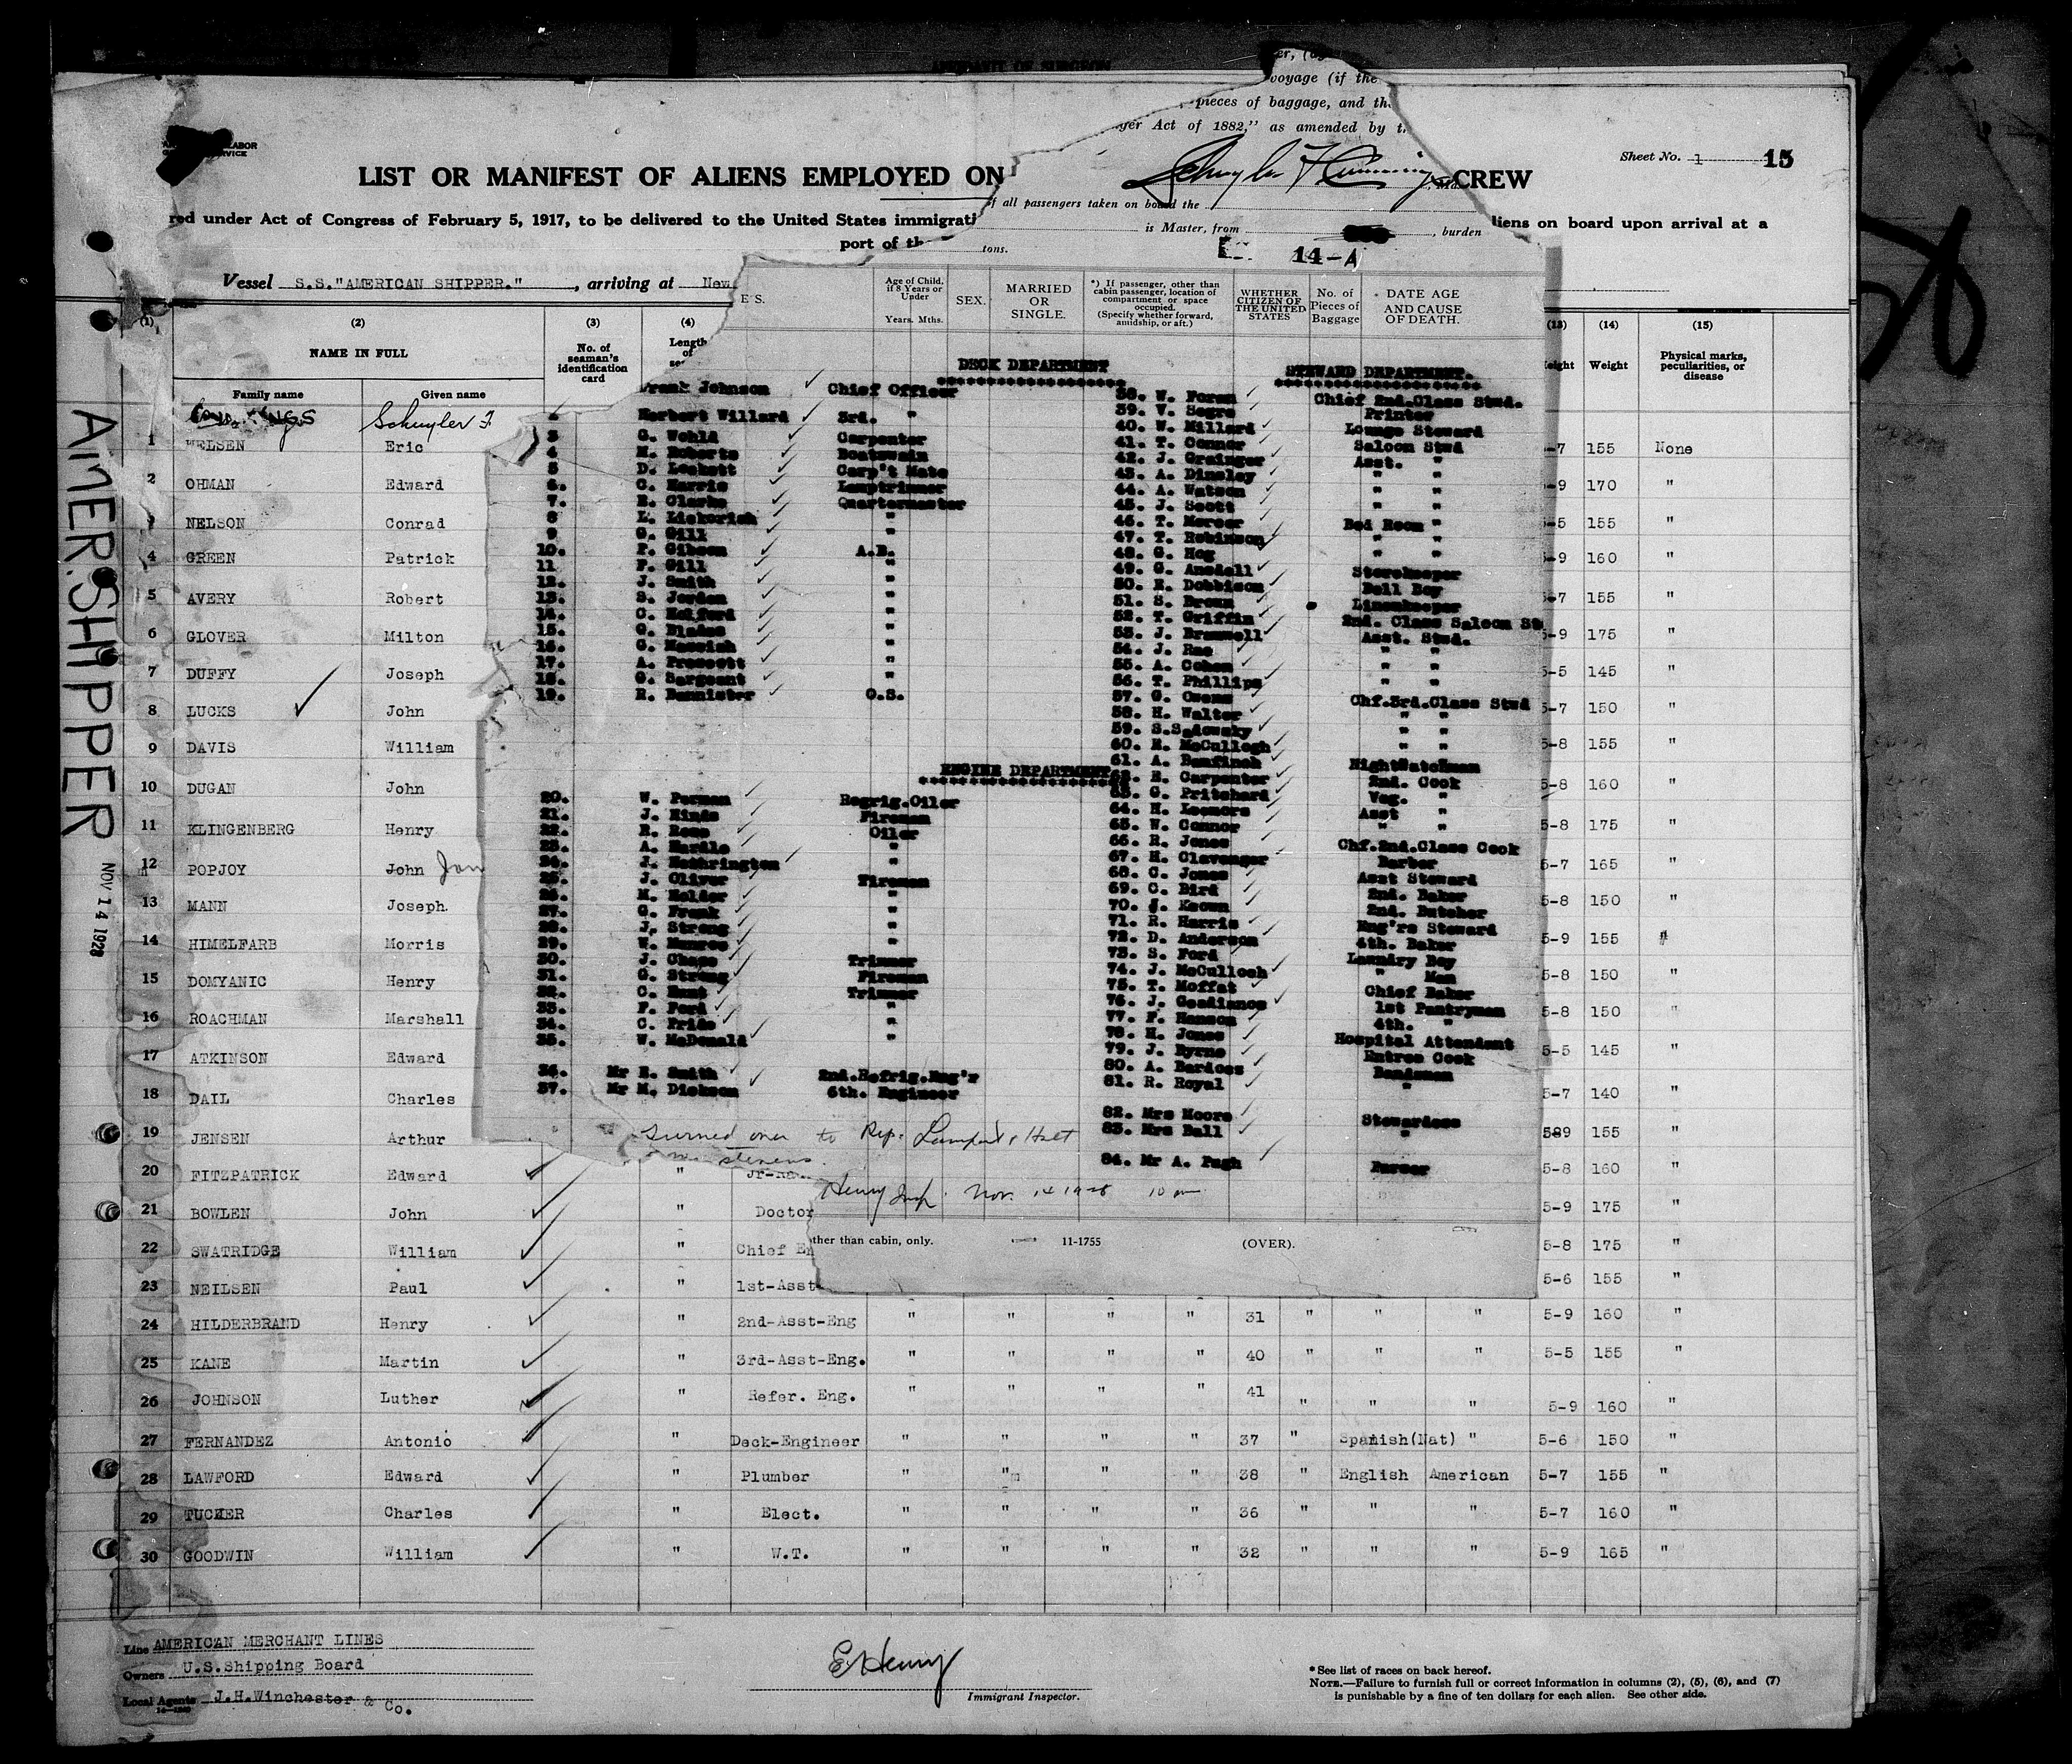 er,
voyage (if the
pieces of baggage, and th
ger Act of 1882," as amended by t
Schuyler F Cummings
LABOR
SERVICE
Sheet No. 1 15
LIST OR MANIFEST OF ALIENS EMPLOYED ON CREW
red under Act of Congress of February 5, 1917, to be delivered to the United States immigrati liens on board upon arrival at a
port of th
of all passengers taken on board the
is Master, from , burden
tons.
14-A
Vessel S.S."AMERICAN SHIPPER." , arriving at New
AMER. SHIPPER
NOV 14 1928
(1) (2) (3) (4) (13) (14) (15)
NAME IN FULL
Family name Given name
No. of seaman's identification card
Length of
eight Weight Physical marks, peculiarities, or disease
E'S. Age of Child, if 8 Years or Under Years. Mths. SEX. MARRIED OR SINGLE. *) If passenger, other than cabin passenger, location of compartment or space occupied. (Specify whether forward, amidship, or aft.) WHETHER CITIZEN OF THE UNITED STATES No. of Pieces of Baggage DATE AGE AND CAUSE OF DEATH.
DECK DEPARTMENT
Frank Johnson Chief Officer
Herbert Willard 3rd. "
3 G. Wohld Carpenter
4 H. Roberts Boatswain
5 D. Leckett Carp't Mate
6. C. Harris Lamptrimmer
7. E. Clarke Quartermaster
8 L. Liekorish "
9 G. Gill "
10. F. Gibson A.B.
11 F. Gill "
12. J. Smith "
13. S. Jordan "
14. C. Halford "
15. G. Blades "
16. C. Messiah "
17. A. Prescott "
18. G. Sargeant "
19. R. Bannister O.S.
ENGINE DEPARTMENT
20. W. Perman Regrig.Oiler
21. J. Hinds Fireman
22. R. Rose Oiler
23. A. Hardle "
24. J. Hethrington "
25. J. Oliver Fireman
26. M. Holder "
27. G. Frank "
28. J. Strong "
29. W. Munroe "
30. J. Chase Trimmer
31. G. Strong Fireman
32. C. Hunt Trimmer
33. F. Ford "
34. C. Pride "
35. W. McDonald "
36. Mr E. Smith 2nd.Refrig.Eng'r
37. Mr M. Dickson 6th. Engineer
STEWARD DEPARTMENT.
38. W. Foran Chief 2nd.Class Stwd.
39. V. Segre Printer
40. W. Millard Lounge Steward
41. T. Connor Saloon Stwd
42. J. Grainger Asst. "
43. A. Dinsley " "
44. A. Watson " "
45. J. Scott " "
46. T. Mercer Bed Room "
47. T. Robinson " "
48. G. Hog " "
49. G. Ansdell Storekeeper
50. E. Dobbison Bell Boy
51. S. Brown Linenkeeper
52. T. Griffin 2nd. Class Saloon St
53. J. Bramwell Asst. Stwd.
54. J. Rae " "
55. A. Cohen " "
56. T. Phillips " "
57. G. Owens Chf.3rd.Class Stwd
58. H. Walter " "
59. S.Sadowsky " "
60. E. McCullogh " "
61. A. Bumfinch NightWatchman
62. E. Carpenter 2nd. Cook
63. G. Pritchard Veg. "
64. H. Leemors Asst "
65. W. Connor " "
66. R. Jones Chf.2nd.Class Cook
67. H. Clavenger Barber
68. C. Jones Asst Steward
69. C. Bird 2nd. Baker
70. J. Keown 2nd. Butcher
71. R. Harris Eng'rs Steward
72. D. Anderson 4th. Baker
73. S. Ford Laundry Boy
74. J. McCulloch " Man
75. T. Moffat Chief Baker
76. J. Goodiance 1st Pantryman
77. F. Hanson 4th. "
78. H. Jones Hospital Attendant
79. J. Byrne Entree Cook
80. A. Bardoss Bandsman
81. R. Royal "
82. Mrs Moore Stewardess
83. Mrs Ball "
84. Mr A. Pugh Purser
Turned over to Rep. Lamport & Holt
stevens.
Henry Insp. Nov. 14 1928 10 am
ther than cabin, only. 11-1755 (OVER).
Cummings Schuyler F.
1 NELSEN Eric -7 155 None
2 OHMAN Edward -9 170 "
3 NELSON Conrad -5 155 "
4 GREEN Patrick -9 160 "
5 AVERY Robert -7 155 "
6 GLOVER Milton 5-9 175 "
7 DUFFY Joseph 5-5 145 "
8 LUCKS John 5-7 150 "
9 DAVIS William 5-8 155 "
10 DUGAN John 5-8 160 "
11 KLINGENBERG Henry 5-8 175 "
12 POPJOY John 5-7 165 "
13 MANN Joseph. 5-8 150 "
14 HIMELFARB Morris 5-9 155 "
15 DOMYANIC Henry 5-8 150 "
16 ROACHMAN Marshall 5-8 150 "
17 ATKINSON Edward 5-5 145 "
18 DAIL Charles 5-7 140 "
19 JENSEN Arthur 589 155 "
20 FITZPATRICK Edward " 5-8 160 "
21 BOWLEN John " Doctor 5-9 175 "
22 SWATRIDGE William " Chief En 5-8 175 "
23 NEILSEN Paul " 1st-Asst- 5-6 155 "
24 HILDERBRAND Henry " 2nd-Asst-Eng " " " " 31 " " " 5-9 160 "
25 KANE Martin " 3rd-Asst-Eng. " " " " 40 " " " 5-5 155 "
26 JOHNSON Luther " Refer. Eng. " " " " 41 " " " 5-9 160 "
27 FERNANDEZ Antonio " Deck-Engineer " " " " 37 " Spanish(Nat) " 5-6 150 "
28 LAWFORD Edward " Plumber " " " " 38 " English American 5-7 155 "
29 TUCKER Charles " Elect. " " " " 36 " " " 5-7 160 "
30 GOODWIN William " W.T. " " " " 32 " " " 5-9 165 "
Line AMERICAN MERCHANT LINES
Owners U.S.Shipping Board
Local Agents J.H.Winchester & Co.
E Henry
Immigrant Inspector.
*See list of races on back hereof.
NOTE.—Failure to furnish full or correct information in columns (2), (5), (6), and (7)
is punishable by a fine of ten dollars for each alien. See other side.